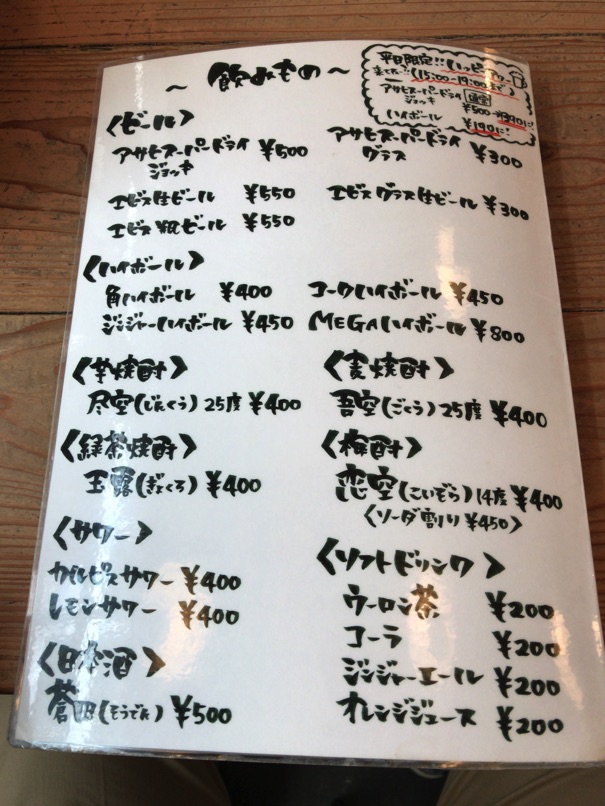 ～ 飲みもの ～
平日限定!!ハッピーアワー
(15:00-19:00まで)
アサヒスーパードライ
ジョッキ
通常
¥500→¥390に!
ハイボール
¥190に!
〈ビール〉
アサヒスーパードライ ¥500
ジョッキ
アサヒスーパードライ
グラス ¥300
エビス生ビール ¥550
エビスグラス生ビール ¥300
エビス瓶ビール ¥550
〈ハイボール〉
角ハイボール ¥400
コークハイボール ¥450
ジンジャーハイボール ¥450
MEGAハイボール ¥800
〈芋焼酎〉
尽空(じんくう)25度 ¥400
〈麦焼酎〉
吾空(ごくう)25度 ¥400
〈緑茶焼酎〉
玉露(ぎょくろ) ¥400
〈梅酎〉
恋空(こいぞら)14度 ¥400
〈ソーダ割り ¥450〉
〈サワー〉
カルピスサワー ¥400
レモンサワー ¥400
〈日本酒〉
蒼田(そうでん) ¥500
〈ソフトドリンク〉
ウーロン茶 ¥200
コーラ ¥200
ジンジャーエール ¥200
オレンジジュース ¥200